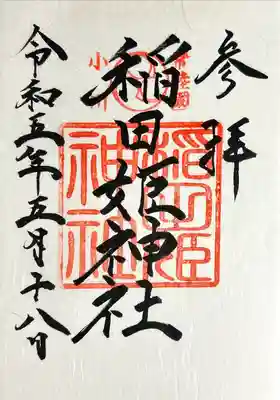 参拝
稲田姫神社
令和五年五月十八日
稲田姫
神社